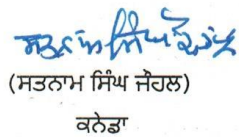 ਸਤਨਾਮ ਸਿੰਘ ਜੌਹਲ
(ਸਤਨਾਮ ਸਿੰਘ ਜੌਹਲ)
ਕਨੇਡਾ